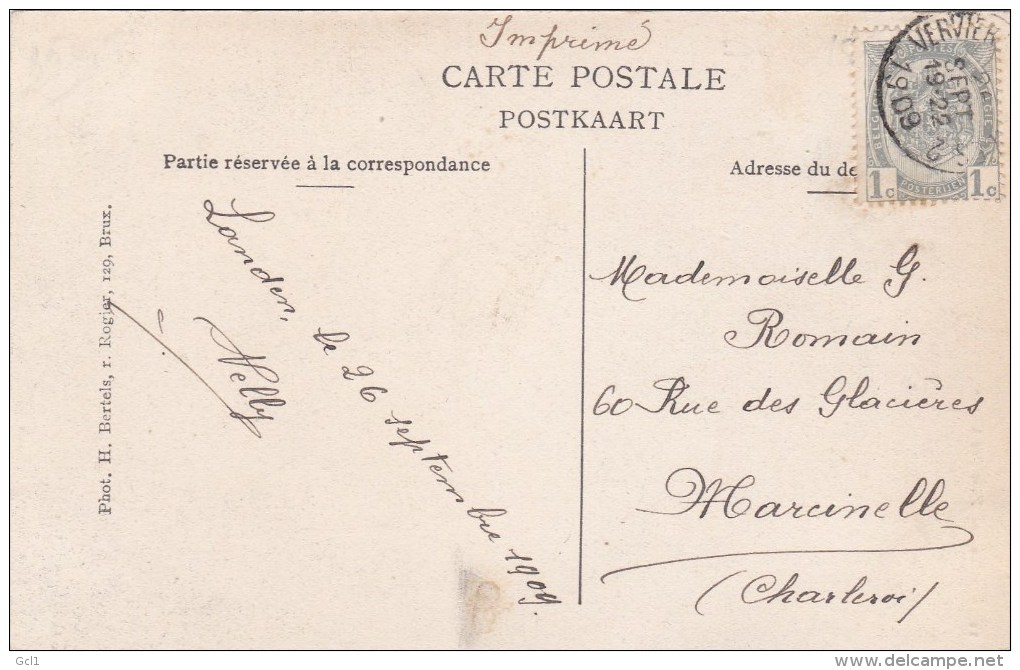 Imprimé
CARTE POSTALE
POSTKAART
Partie réservée à la correspondance
Adresse du de
VERVIE
SEPT
19-22
1909
BELGIQUE
POSTERIJEN
1c 1c
Landen,
le 26 septembre 1909.
Nelly
Mademoiselle G.
Romain
60 Rue des Glacières
Marcinelle
(Charleroi)
Phot. H. Bertels, r. Rogier, 129, Brux.
Gcl1
delcampe.net